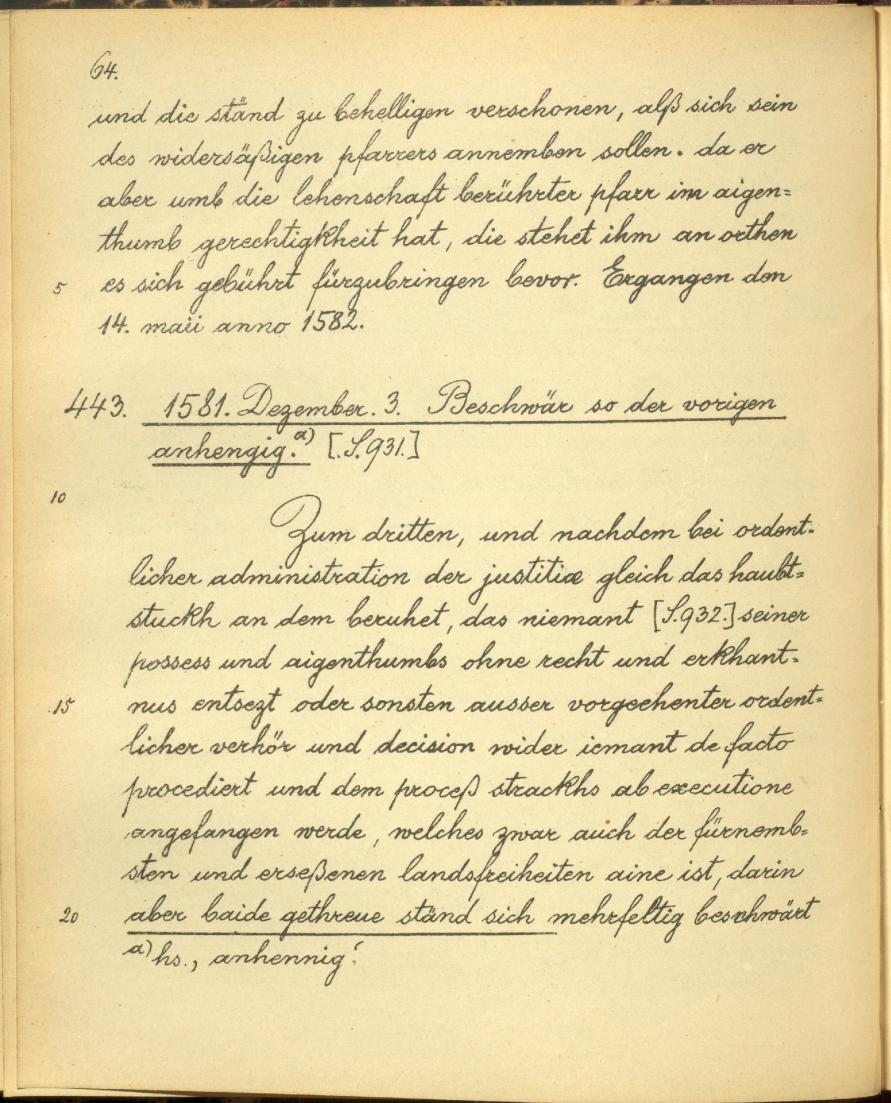 64.
und die ständ zu behelligen verschonen, alß sich sein
des widersäßigen pfarrers annemben sollen. da er
aber umb die lehenschaft berührter pfarr im aigen=
thumb gerechtigkheit hat, die stehet ihm an orthen
5 es sich gebührt fürzubringen bevor. Ergangen den
14. maii anno 1582.
443. 1581. Dezember. 3. Beschwär so der vorigen
anhengig.a) [.S.931.]
10
Zum dritten, und nachdem bei ordent=
licher administration der justitiæ gleich das haubt=
stuckh an dem beruhet, das niemant [S.932.] seiner
possess und aigenthumbs ohne recht und erkhant=
15 nus entsezt oder sonsten ausser vorgeehenter ordent=
licher verhör und decision wider iemant de facto
procediert und dem proceß strackhs ab executione
angefangen werde, welches zwar auch der fürnemb=
sten und erseßenen landsfreiheiten aine ist, darin
20 aber baide gethreue ständ sich mehrfeltig beschwärt
a) hs., anhennig‘.